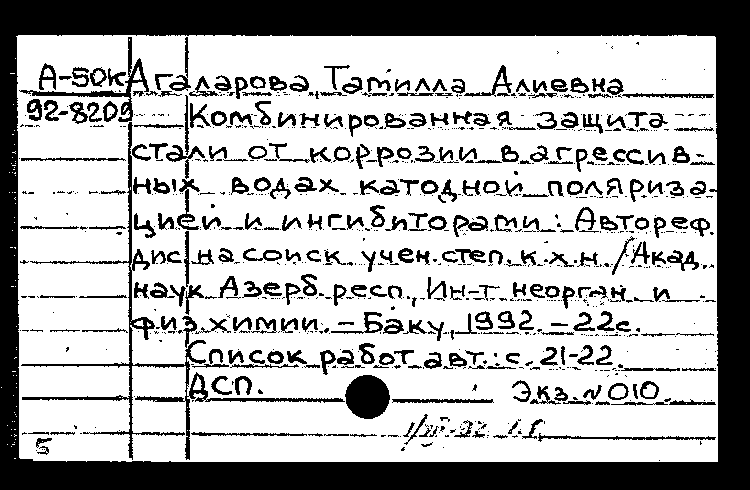 А-50к Агаларова, Тамилла Алиевна
92-8209 Комбинированная защита
стали от коррозии в агрессив-
ных водах катодной поляриза-
цией и ингибиторами: Автореф.
дис. на соиск. учен. степ. к.х.н. / Акад.
наук Азерб. респ., Ин-т неорган. и
физ. химии. - Баку, 1992. - 22с.
Список работ авт.: с. 21-22.
ДСП. Экз. N 010.
5